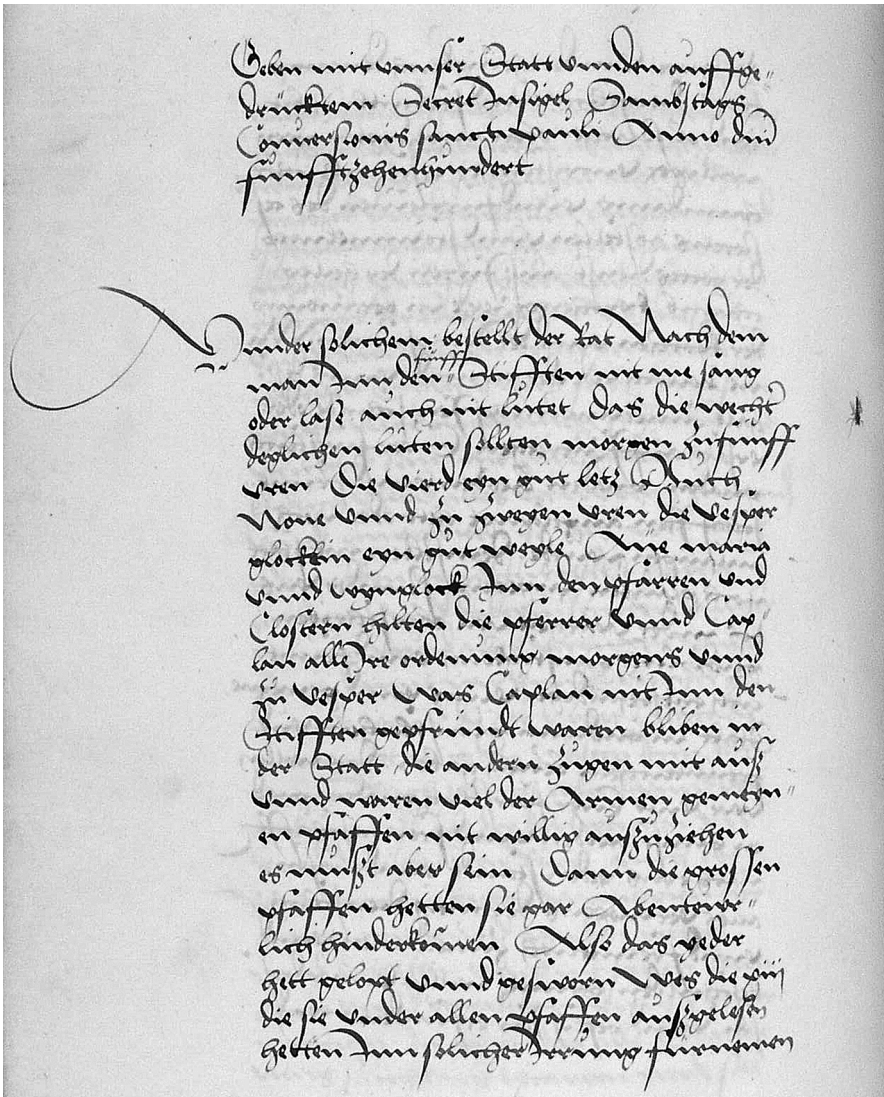 Geben mit vnnser Statt vnnden auffge„
drücktem Secret Insigel Sambstags
Conuersionis sancti pauli Anno dni̅
fünfftzehenhündert
Vnnder solichem bestellt der Rat Nach dem
man Inn den fünff Stifften nit me sang
oder lase auch nit lütet Das die wechter
deglichen lüten sollten morgen zu fünff
vren Die vierd eyn güt letz Auch
None vnnd zü zweyen vren die vesper
glocken eyn güt weyle Aue maria
vnnd wynglock Inn den pfarren vnd
Clostern hilten die pferrer vnnd Cap„
lan alle Ire ordenung morgens vnnd
zü vesper Was Caplan nit Inn den
Stifften gepfründt waren bliben in
der Statt die andern zugen mit auß
vnnd waren viel der Armen gemeyn„
en pfaffen nit willig auszuziehen
es müßt aber sein Dann die grossen
pfaffen hetten sie gar Abenteüer„
lich hinderkomen Also das yeder
hett gelopt vnnd gesworn Wes die xiij
die sie vnder allen pfaffen außgelesen
hetten Inn solicher Irrung fürnemen